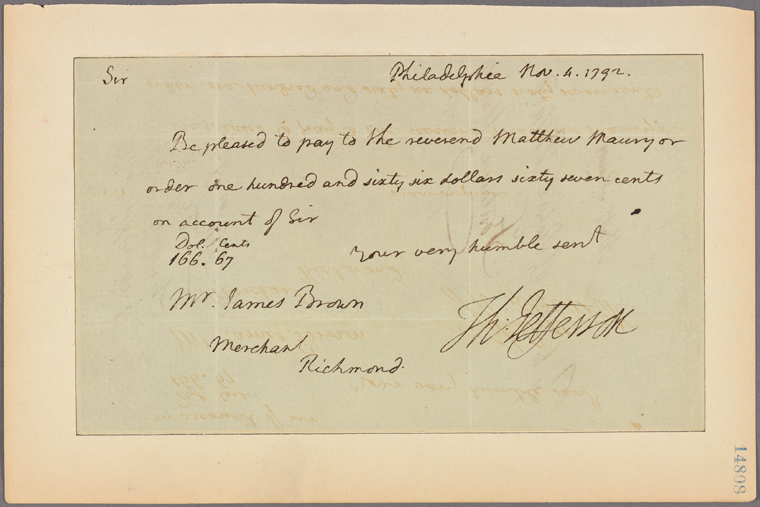 Sir
Philadelphia Nov. 4. 1792.
Be pleased to pay to the reverend Matthew Maury or
order one hundred and sixty six dollars sixty seven cents
on account of Sir
Dol. Cents
166. 67
your very humble servt
Mr. James Brown
Merchant
Richmond.
Th: Jefferson
14808